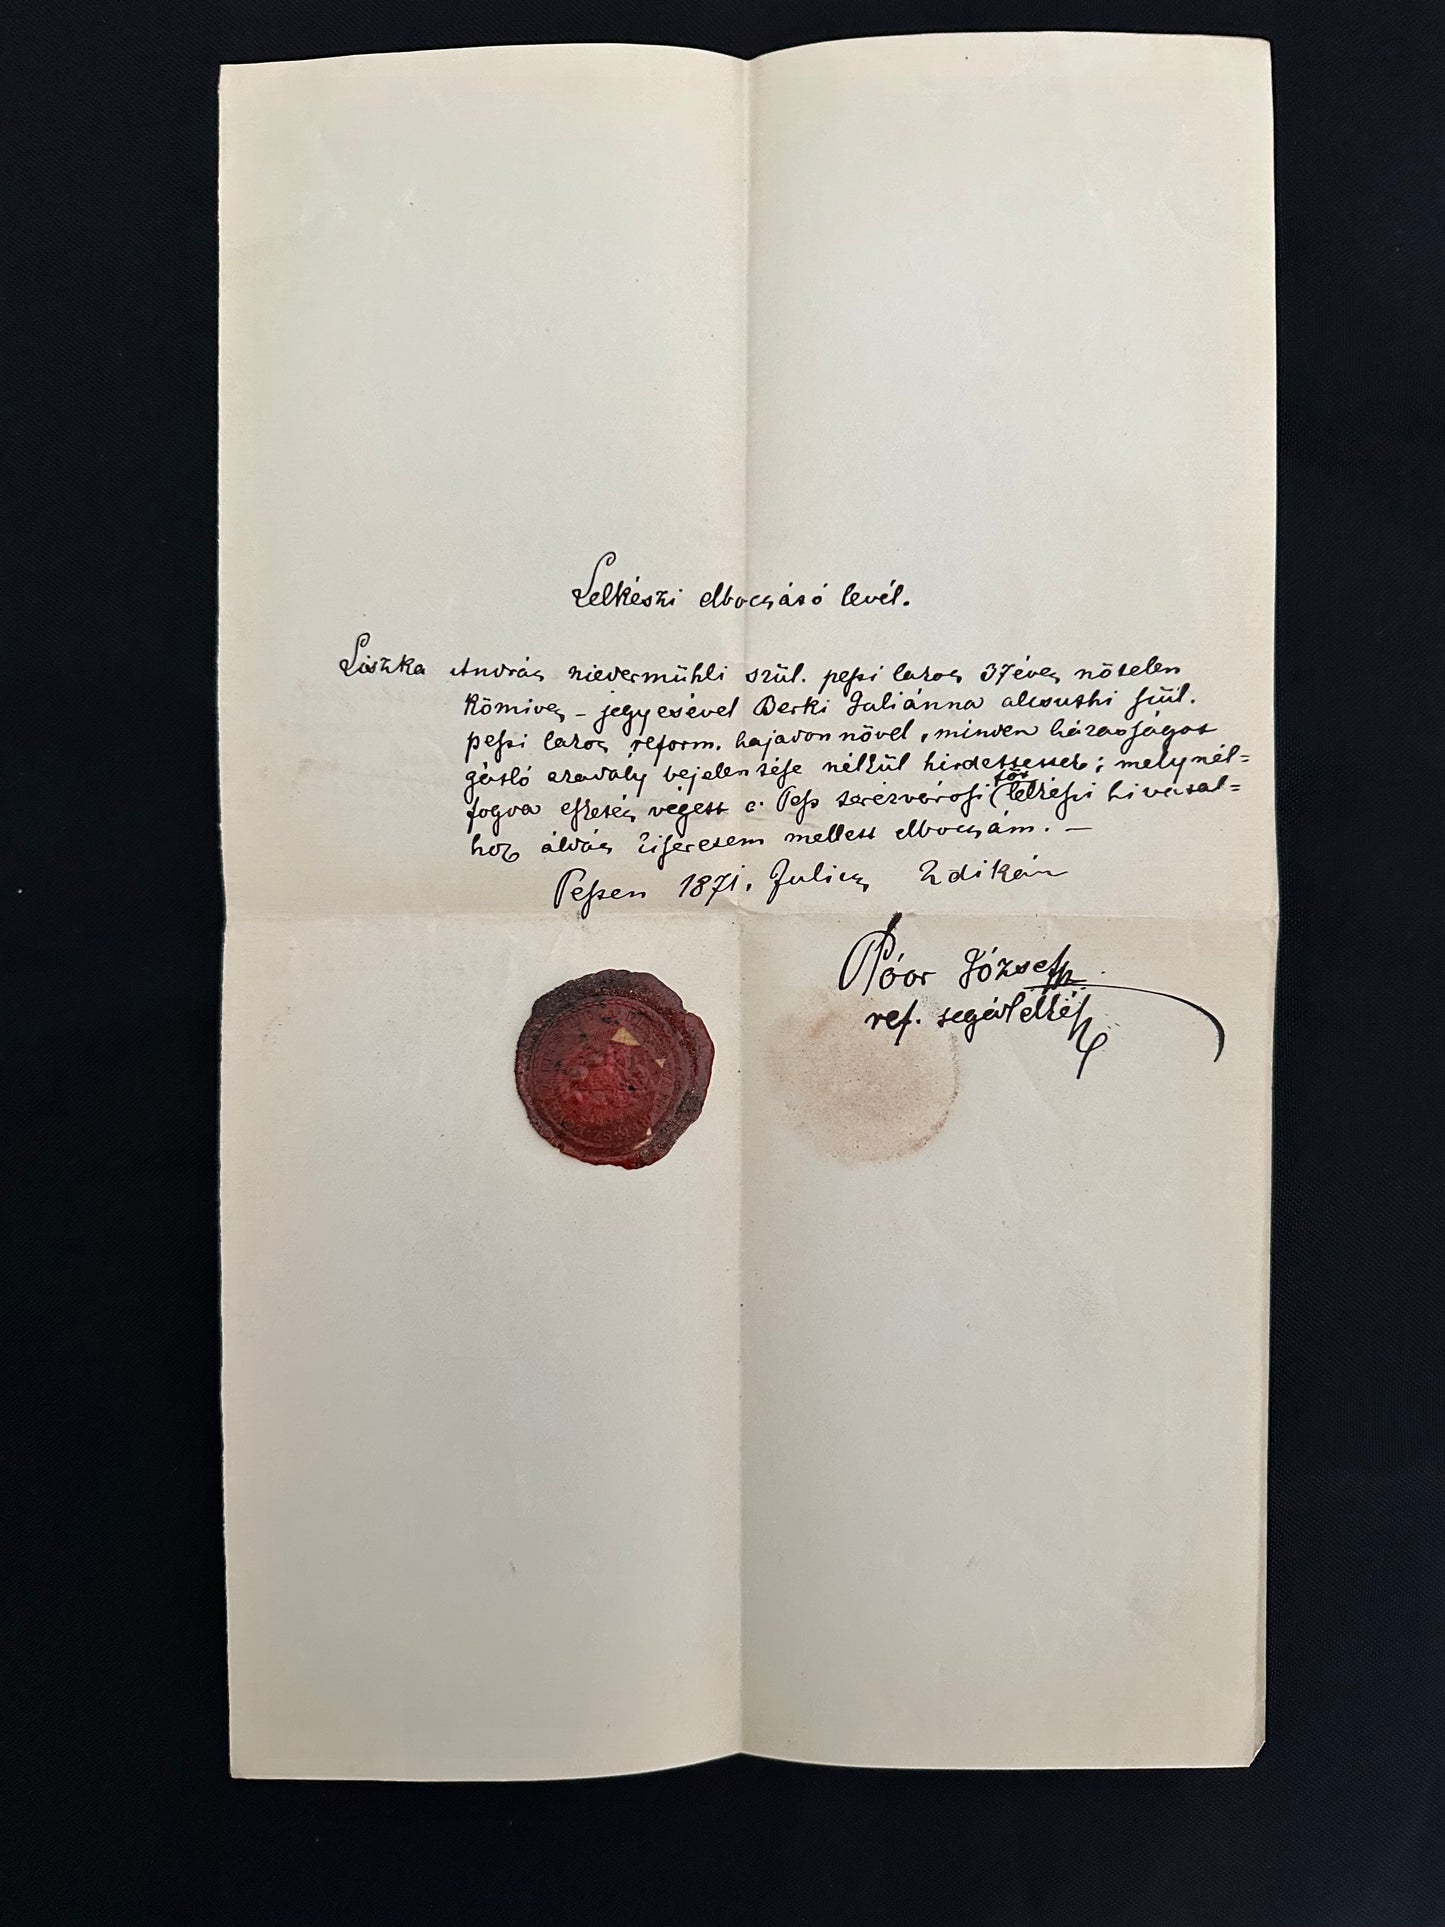 Lelkészi elbocsátó levél.
Liszka András niedermühli szül. pesti lakos 37 éves nőtelen
Kőmives – jegyesével Berki Juliánna alcsuthi szül.
pesti lakos reform. hajadon nővel, minden házasságot
gátló akadály bejelentése nélkül hirdettettek; melynél=
fogva esketés végett a Pest terézvárosi lelkészi hivatal=
hoz áldás kiséretem mellett elbocsátom. –
Pesten 1871. Julius 2dikán
Póor József
ref. segédlelkész